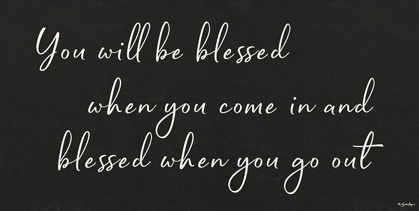 You will be blessed
when you come in and
blessed when you go out